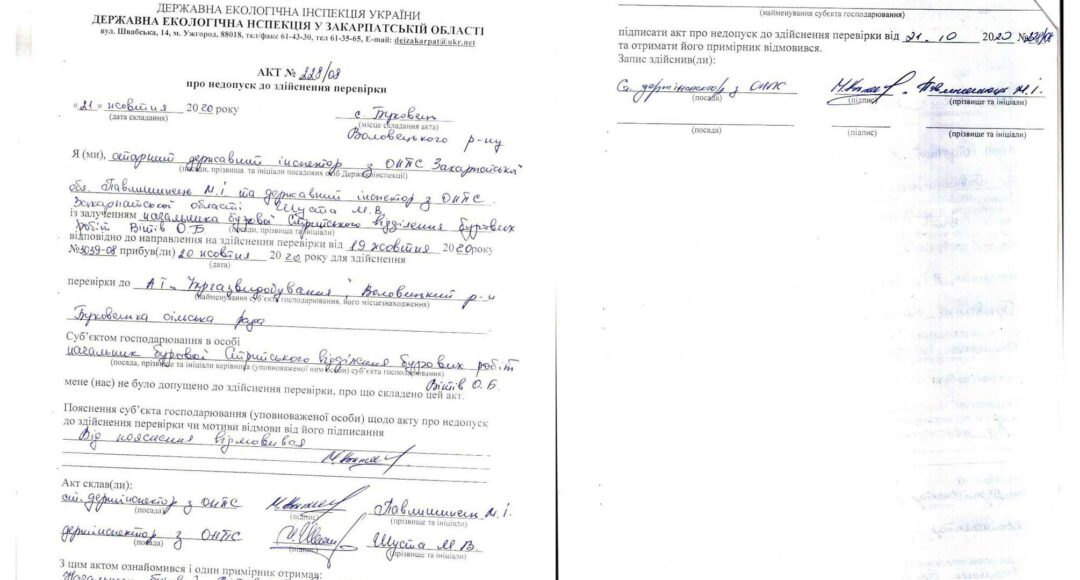 ДЕРЖАВНА ЕКОЛОГІЧНА ІНСПЕКЦІЯ УКРАЇНИ
ДЕРЖАВНА ЕКОЛОГІЧНА НСПЕКЦІЯ У ЗАКАРПАТСЬКІЙ ОБЛАСТІ
вул. Швабська, 14, м. Ужгород, 88018, тел/факс 61-43-30, тел 61-35-65, E-mail: deizakarpat@ukr.net
АКТ № 228/08
про недопуск до здійснення перевірки
«21» жовтня 2020 року с. Буковець
(дата складання) (місце складання акта)
Воловецького р-ну
Я (ми), старший державний інспектор з ОНПС Закарпатської
(посади, прізвища та ініціали посадових осіб Держекоінспекції)
обл. Павлишинець М.І. та державний інспектор з ОНПС
Закарпатської області Шуста М.В.
із залученням начальника бурової Стрийського відділення бурових
робіт Вітів О.Б (посади, прізвища та ініціали)
відповідно до направлення на здійснення перевірки від 19 жовтня 2020 року
№3039-08 прибув(ли) 20 жовтня 2020 року для здійснення
(дата)
перевірки до АТ „Укргазвидобування", Воловецький р-н
(найменування суб'єкта господарювання, його місцезнаходження)
Буковецька сільська рада
Суб'єктом господарювання в особі
начальник бурової Стрийського відділення бурових робіт
(посада, прізвище та ініціали керівника (уповноваженої ним особи) суб'єкта господарювання)
Вітів О.Б.
мене (нас) не було допущено до здійснення перевірки, про що складено цей акт.
Пояснення суб'єкта господарювання (уповноваженої особи) щодо акту про недопуск
до здійснення перевірки чи мотиви відмови від його підписання
Від пояснення відмовився
Акт склав(ли):
ст. держінспектор з ОНПС Павлишинець М.І.
(посада) (підпис) (прізвище та ініціали)
держінспектор з ОНПС Шуста М.В.
(посада) (підпис) (прізвище та ініціали)
З цим актом ознайомився і один примірник отримав:
Начальник бурової
(найменування субєкта господарювання)
підписати акт про недопуск до здійснення перевірки від 21.10 2020 №228/08
та отримати його примірник відмовився.
Запис здійснив(ли):
Ст. держінспектор з ОНПС Павлишинець М.І.
(посада) (підпис) (прізвище та ініціали)
(посада) (підпис) (прізвище та ініціали)